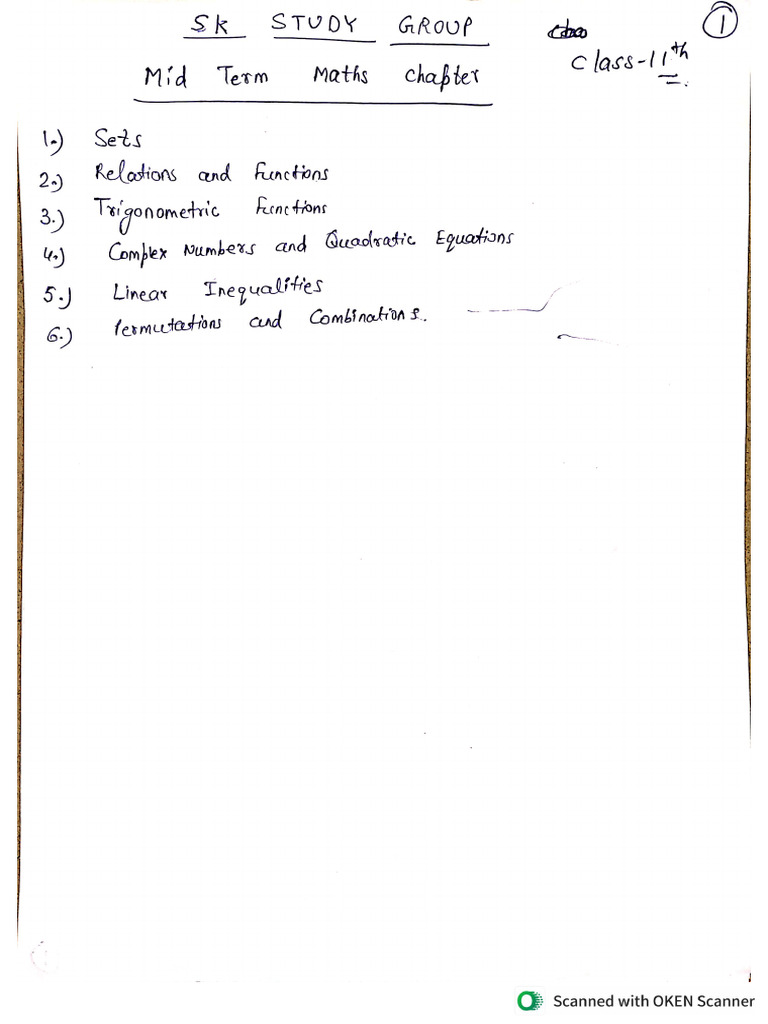 SK STUDY GROUP
1
Class-11th
Mid Term Maths Chapter
1.) Sets
2.) Relations and Functions
3.) Trigonometric Functions
4.) Complex Numbers and Quadratic Equations
5.) Linear Inequalities
6.) Permutations and Combinations.
Scanned with OKEN Scanner